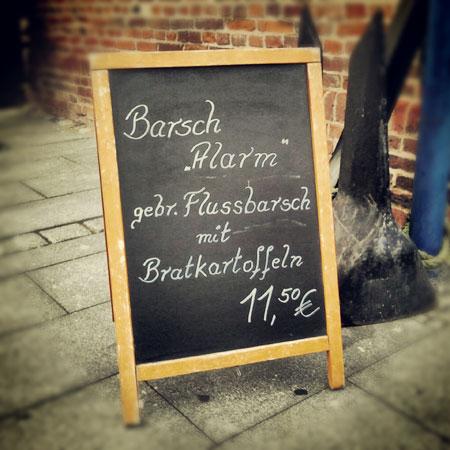 Barsch
„Alarm“
gebr. Flussbarsch
mit
Bratkartoffeln
11,50€